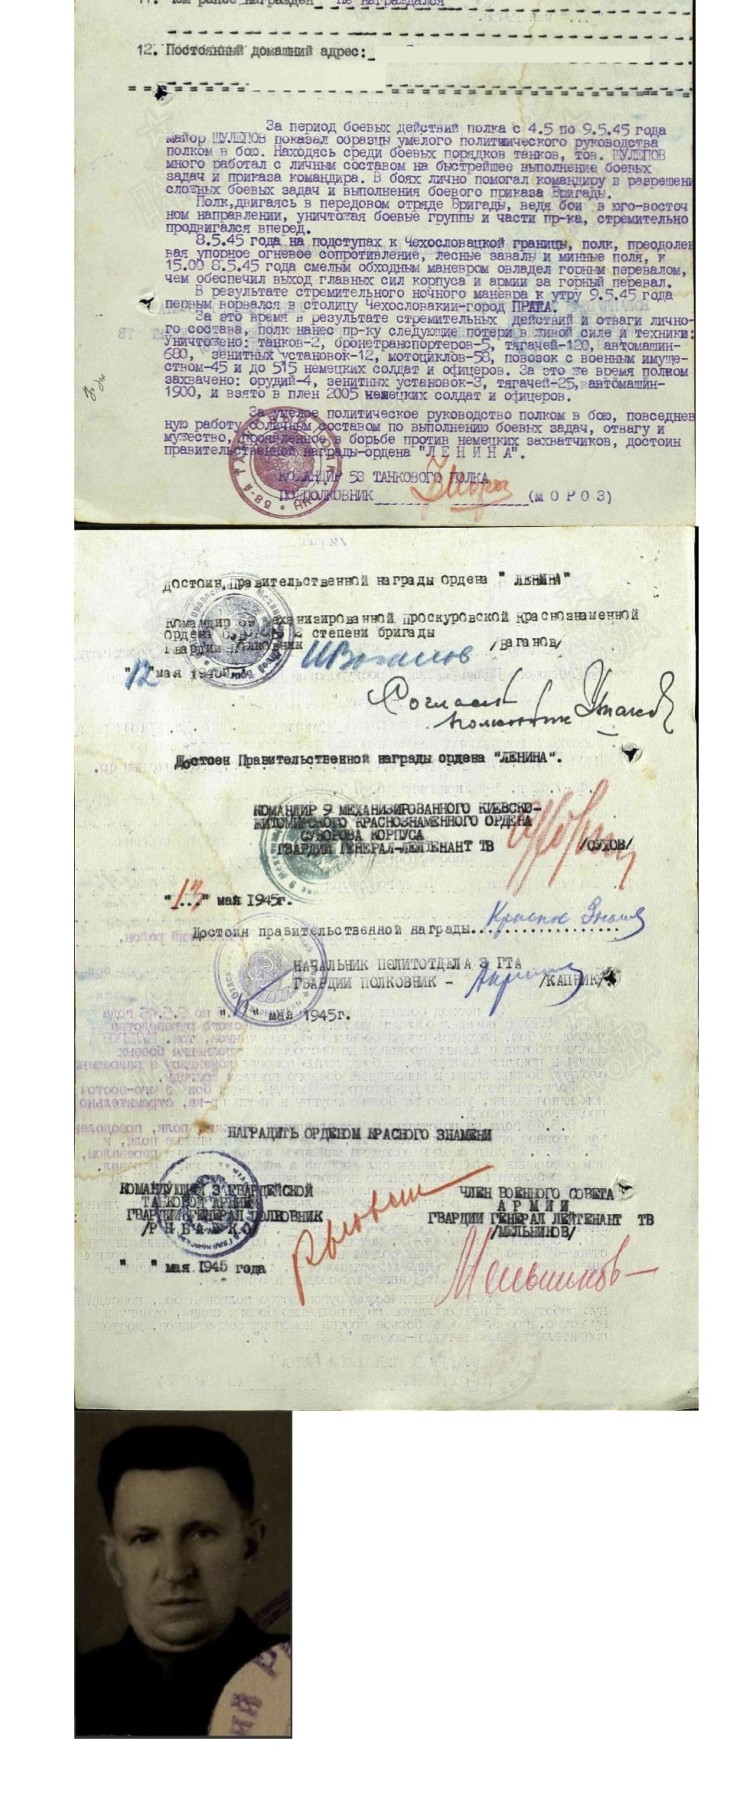 11. Чем ранее награжден Не награждался
12. Постоянный домашний адрес:
За период боевых действий полка с 4.5 по 9.5.45 года
майор ШУЛЕПОВ показал образцы умелого политического руководства
полком в бою. Находясь среди боевых порядков танков, тов. ШУЛЕПОВ
много работал с личным составом на быстрейшее выполнение боевых
задач и приказа командира. В боях лично помогал командиру в разрешени
сложных боевых задач и выполнения боевого приказа Бригады.
Полк, двигаясь в передовом отряде Бригады, ведя бои в юго-восточ
ном направлении, уничтожая боевые группы и части пр-ка, стремительно
продвигался вперед.
8.5.45 года на подступах к Чехословацкой границы, полк, преодолев
вая упорное огневое сопротивление, лесные завалы и минные поля, к
15.00 8.5.45 года смелым обходным маневром овладел горным перевалом,
чем обеспечил выход главных сил корпуса и армии за горный перевал.
В результате стремительного ночного маневра к утру 9.5.45 года
первым ворвался в столицу Чехословакии-город ПРАГА.
За это время в результате стремительных действий и отваги лично-
го состава, полк нанес пр-ку следующие потери в живой силе и технике:
Уничтожено: танков-2, бронетранспортеров-5, тягачей-120, автомашин-
680, зенитных установок-12, мотоциклов-58, повозок с военным имуще-
ством-45 и до 515 немецких солдат и офицеров. За это же время полком
захвачено: орудий-4, зенитных установок-3, тягачей-25, автомашин-
1900, и взято в плен 2005 немецких солдат и офицеров.
За умелое политическое руководство полком в бою, повседнев
ную работу с личным составом по выполнению боевых задач, отвагу и
мужество, проявленное в борьбе против немецких захватчиков, достоин
правительственной награды-ордена "Л Е Н И Н А".
КОМАНДИР 53 ТАНКОВОГО ПОЛКА
ПОДПОЛКОВНИК (М О Р О З)
Достоин, Правительственной награды Ордена " ЛЕНИНА"
Командир 69 механизированной проскуровской Краснознаменной
Ордена 2 степени бригады
Гвардии Полковник /ВАГАНОВ/
"12" мая 1945 года
Согласен
полковник
Достоен Правительственной награды ордена "ЛЕНИНА".
КОМАНДИР 9 МЕХАНИЗИРОВАННОГО КИЕВСКО-
ЖИТОМИРСКОГО КРАСНОЗНАМЕННОГО ОРДЕНА
СУВОРОВА КОРПУСА
ГВАРДИИ ГЕНЕРАЛ-ЛЕЙТЕНАНТ ТВ /СУХОВ/
"13" май 1945г.
Достоин правительственной награды Красное Знамя
НАЧАЛЬНИК ПОЛИТОТДЕЛА 3 ГТА
ГВАРДИИ ПОЛКОВНИК - /КАПНИК/
мая 1945г.
НАГРАДИТЬ ОРДЕНОМ КРАСНОГО ЗНАМЕНИ
КОМАНДУЮЩИЙ 3 ГВАРДЕЙСКОЙ ЧЛЕН ВОЕННОГО СОВЕТА
ТАНКОВОЙ АРМИИ А Р М И И
ГВАРДИИ ГЕНЕРАЛ ПОЛКОВНИК ГВАРДИИ ГЕНЕРАЛ ЛЕЙТЕНАНТ ТВ
/Р Ы Б А Л К О/ /МЕЛЬНИКОВ/
" " мая 1945 года Мельников